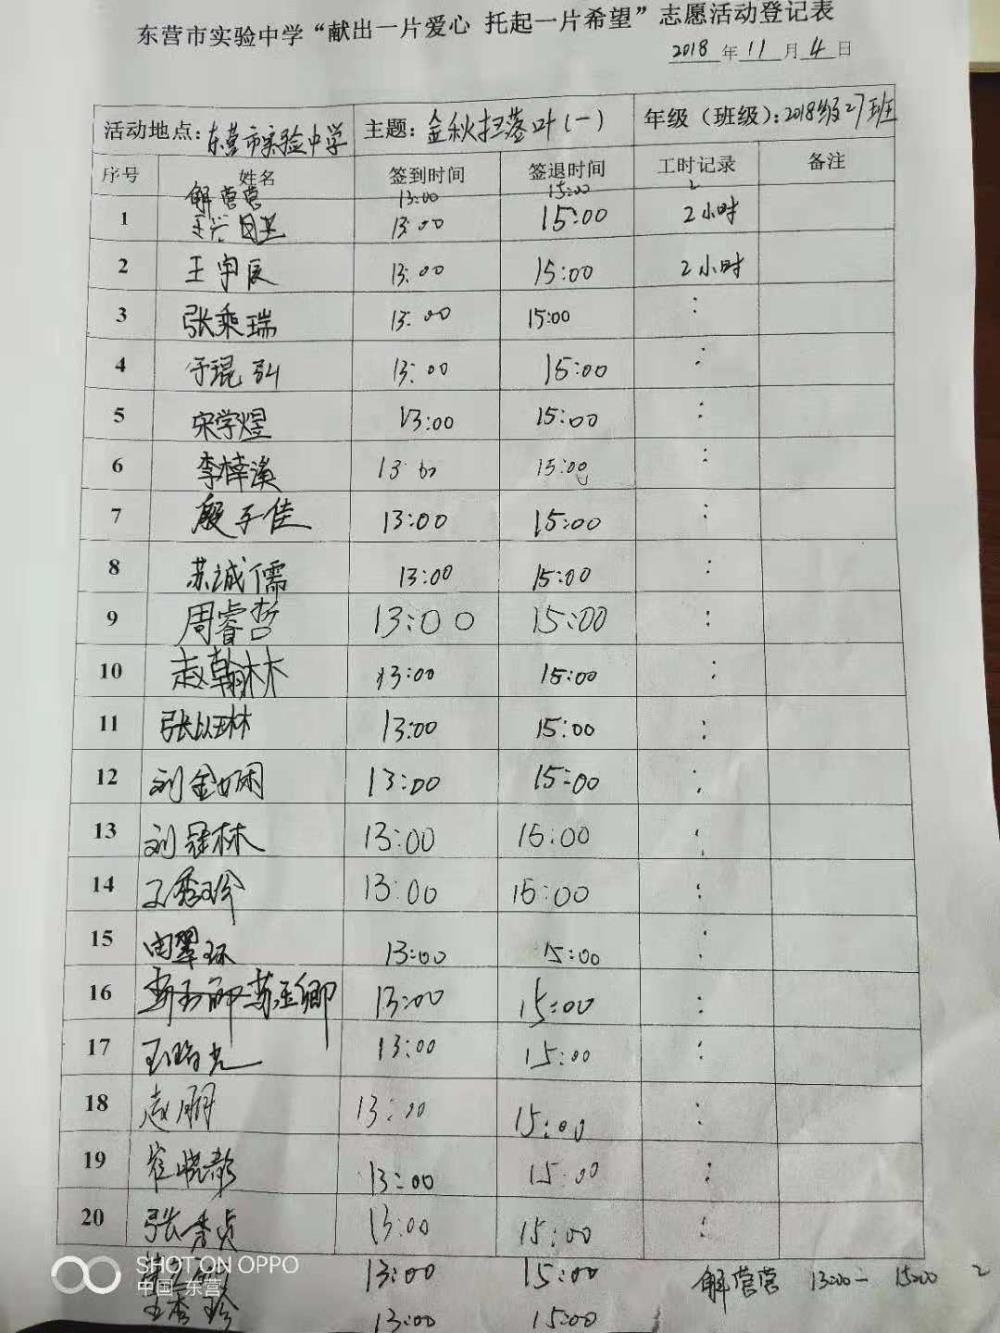 东营市实验中学“献出一片爱心 托起一片希望”志愿活动登记表
2018 年 11 月 4 日
活动地点：东营市实验中学 主题：金秋扫落叶（一） 年级（班级）：2018级27班
序号 姓名 签到时间 签退时间 工时记录 备注
解营营 13:00 15:00 2
1 13:00 15:00 2小时
2 王宇辰 13:00 15:00 2小时
3 张乘瑞 13:00 15:00 :
4 于琨弘 13:00 15:00 :
5 宋学煜 13:00 15:00 :
6 李梓溪 13:00 15:00 :
7 殷子佳 13:00 15:00 :
8 苏诚儒 13:00 15:00 :
9 周睿哲 13:00 15:00 :
10 赵翰林 13:00 15:00 :
11 张以琳 13:00 15:00 :
12 刘金娴 13:00 15:00 :
13 刘冠林 13:00 15:00 :
14 王秀珍 13:00 15:00 :
15 田翠环 13:00 15:00 :
16 13:00 15:00 :
17 13:00 15:00 :
18 志朋 13:00 15:00 :
19 崔晓彩 13:00 15:00 :
20 张秀贞 13:00 15:00 :
13:00 15:00 解营营 13:00－15:00 2
王秀珍 13:00 15:00
SHOT ON OPPO
中国·东营